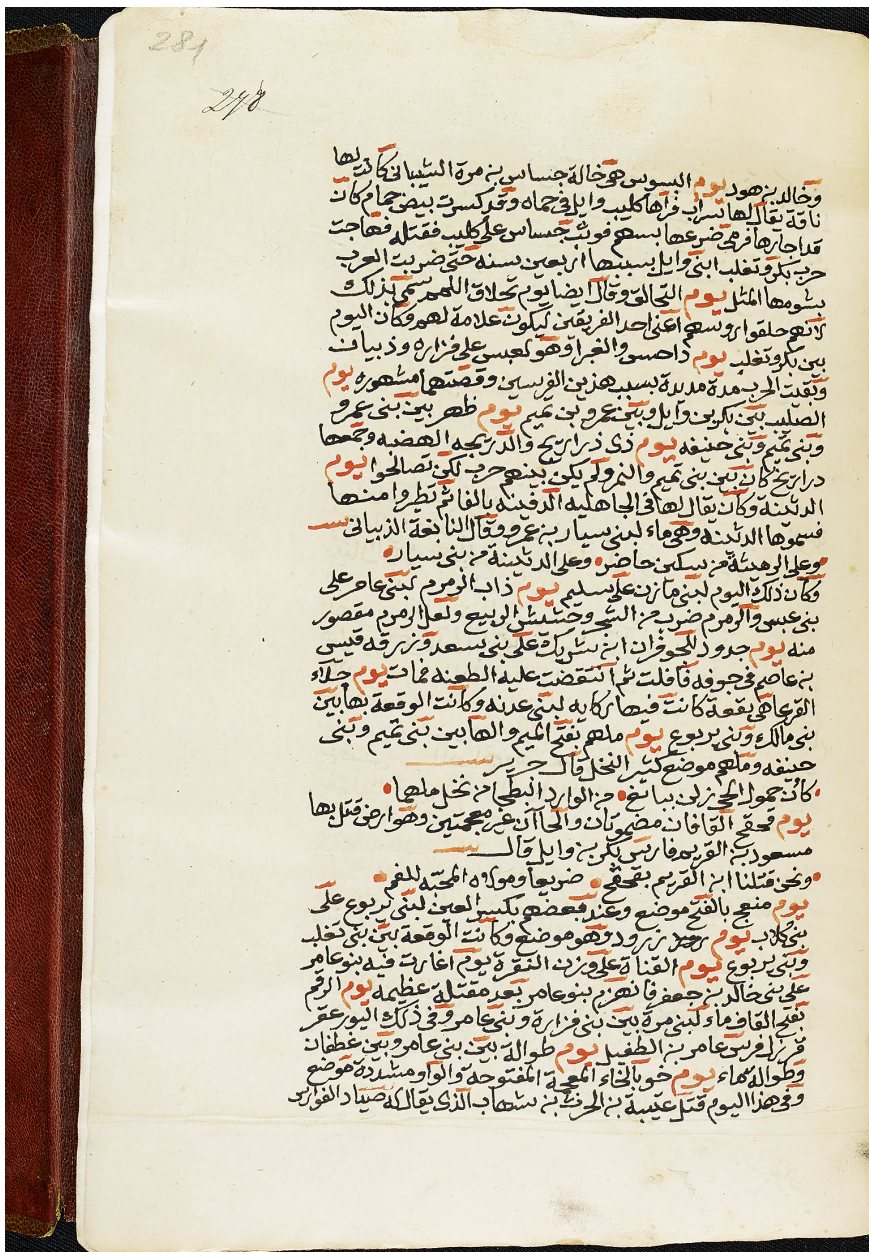 281
278
وخالد بن هود يوم البسوس هى خالة جساس بن مرة الشيبانى كانت لها
ناقة يقال لها سراب فراها كليب وايل فى حماه وقد كسرت بيض حمام كان
قد اجارها فرمى ضرعها بسهم فوثب جساس على كليب فقتله فهاجت
حرب بكر وتغلب ابنى وايل بسببها اربعين سنه حتى ضربت العرب
بشومها المثل يوم التحالق وقال ايضا يوم تحلاق اللمم سمى بذلك
لانهم حلقوا روسهم اعنى احد الفريقين ليكون علامة لهم وكان اليوم
بين بكر وتغلب يوم داحس والغبرا وهو لعبس على فزاره وذبيان
وبقيت الحرب مدة مديدة بسبب هذين الفرسين وقصتهما مشهوره يوم
الصليب بين بكر بن وايل وبين عمرو بن تميم يوم ظهر بين بنى عمرو
وبنى تميم وبنى حنيفه يوم ذى ذراريح والذريحه الهضبه وجمعها
ذراريح كان بين بنى تميم والنمر ولم يكن بينهم حرب لكن تصالحوا يوم
الدثينة وكان يقال لها فى الجاهليه الدفينه بالفا ثم تطيروا منها
فسموها الدثينه وهى ماء لبنى سيار بن عمرو وقال النابغة الذبيانى
وعلى الرميثة من سكين حاضر وعلى الدثينة من بنى سيار
وكان ذلك اليوم لبنى مازن على سليم يوم ذاب الرمرم لبنى عامر على
بنى عبس والرمرم ضرب من الشجر وحشيش الربيع ولعل الرمرم مقصور
منه يوم جدود للحوفزان ابن شريك على بنى سعد وزرقه قيس
بن عاصم فى جوفه فافلت ثم انتقضت عليه الطعنه فمات يوم جلاء
القرعا هى بقعة كانت فيها ركايه لبنى عدنه وكانت الوقعة بها بين
بنى مالك وبنى يربوع يوم ملهم بفتح الميم والها بين بنى تميم وبنى
حنيفه وملهم موضع كثير النخل قال جرير
كان حمول الحى زلن بيانع من الوارد البطحا من نخل ملهما
يوم قحقح القافان مضمومتان والحاآن غير معجمتين وهو ارض قتل بها
مسعود بن القريم فارس بكر بن وايل قال
ونحن قتلنا ابن القريم بقحقح ضريعا ومولاه المحبه للفم
يوم منعج بالفتح موضع وعند بعضهم بكسر العين لبنى يربوع على
بنى كلاب يوم زرود وهو موضع وكانت الوقعة بين بنى تغلب
وبنى يربوع يوم القناة على وزن النقرة يوم اغارت فيه بنو عامر
على بنى خالد بن جعفر فانهزم بنو عامر بعد مقتلة عظيمه يوم الرقم
بفتح القاف ماء لبنى مرة بين بنى فزارة وبنى عامر وفى ذلك اليوم عقر
قرزل فرس عامر بن الطفيل يوم طوالة بين بنى عامر وبين غطفان
وطواله ماء يوم خو بالخاء المعجمة المفتوحة والواو مشددة موضع
وفى هذا اليوم قتل عتيبة بن الحرث بن شهاب الذى يقال له صياد الفوارس